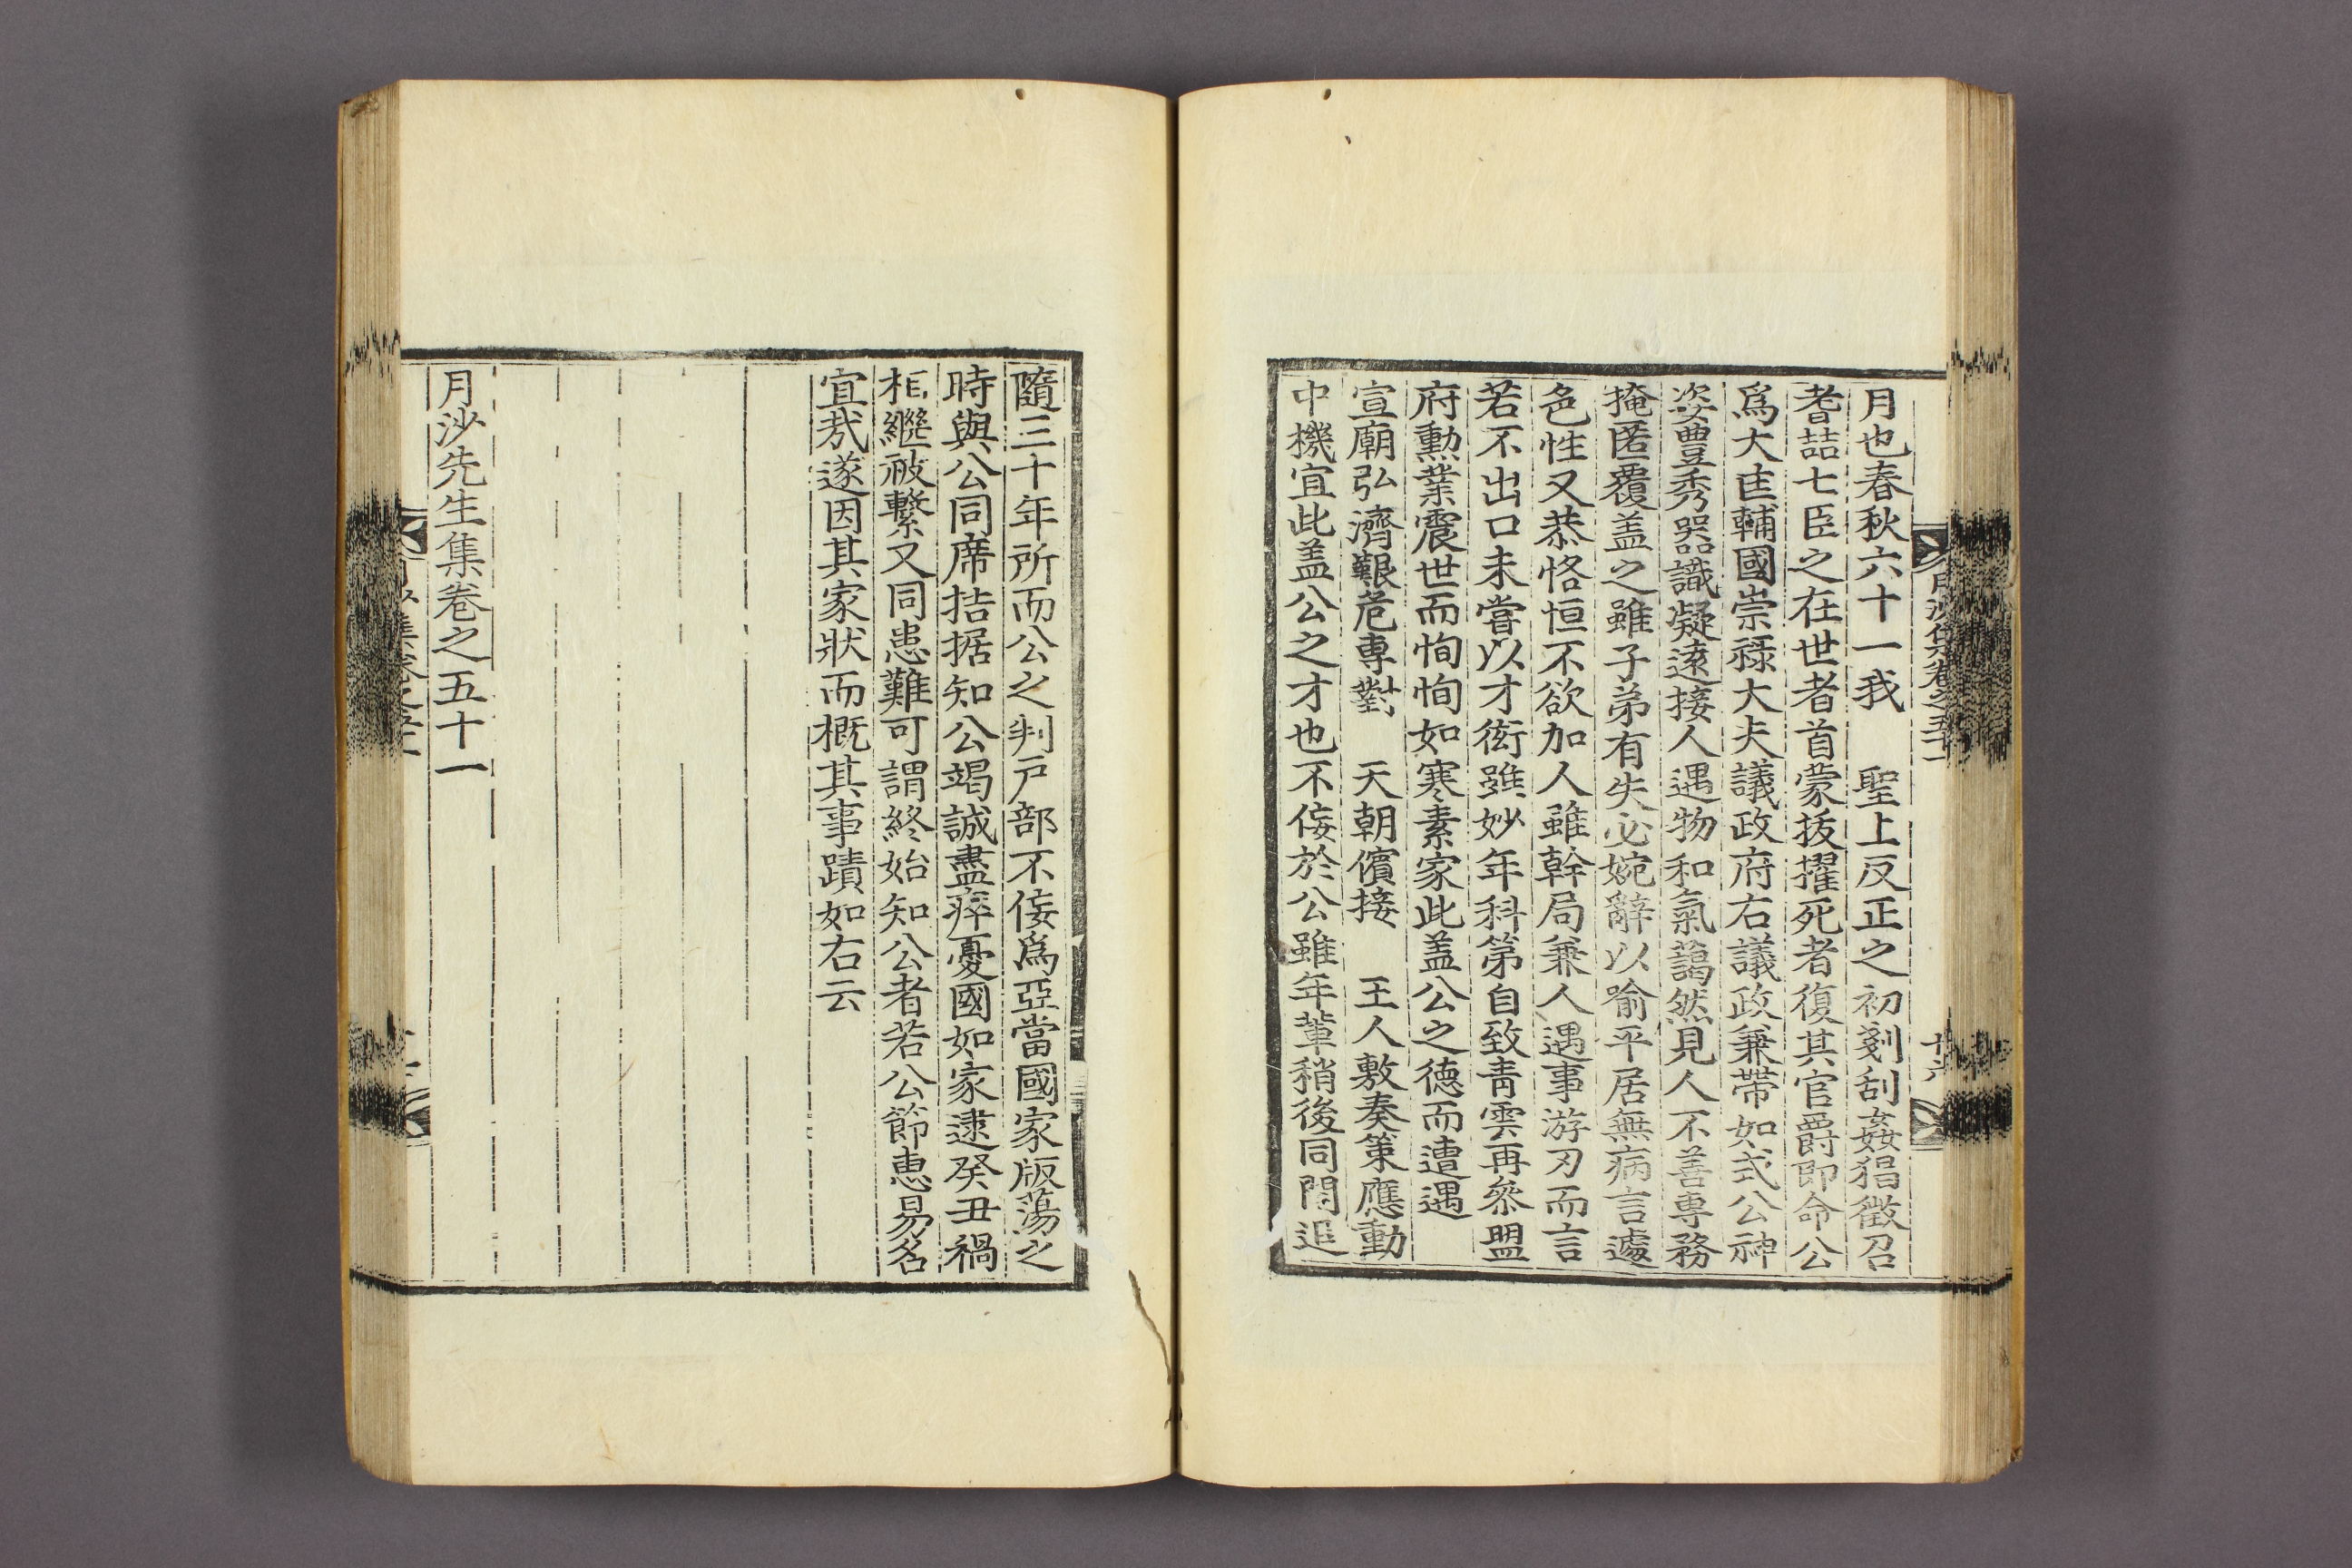 月沙集卷之五十一
十六
月也春秋六十一我 聖上反正之初剗刮姦猖徵召
耆喆七臣之在世者首蒙拔擢死者復其官爵即命公
爲大匡輔國崇祿大夫議政府右議政兼帶如式公神
姿豐秀器識凝遠接人遇物和氣藹然見人不善專務
掩匿覆盖之雖子弟有失必婉辭以喻平居無病言遽
色性又恭恪恒不欲加人雖幹局兼人遇事游刃而言
若不出口未嘗以才衒雖妙年科第自致靑雲再參盟
府勳業震世而恂恂如寒素家此盖公之德而遭遇
宣廟弘濟艱危專對 天朝儐接 王人敷奏策應動
中機宜此盖公之才也不侫於公雖年輩稍後同閈追
隨三十年所而公之判戶部不侫爲亞當國家版蕩之
時與公同席拮据知公竭誠盡瘁憂國如家逮癸丑禍
相繼被繫又同患難可謂終始知公者若公節惠易名
宜㢤遂因其家狀而概其事蹟如右云
月沙先生集卷之五十一